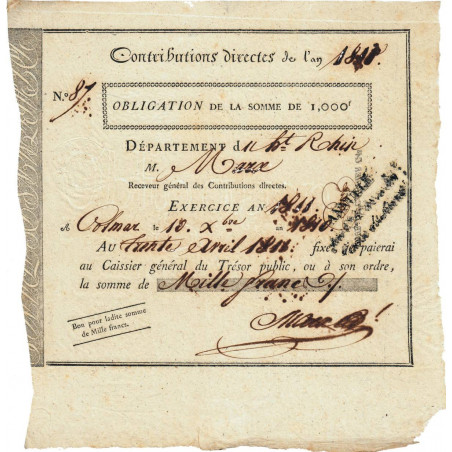 Contributions directes de l'an 1811.
N.º 87.
OBLIGATION DE LA SOMME DE 1,000f
DÉPARTEMENT du ht. Rhin
M. Marx
Receveur général des Contributions directes.
EXERCICE AN 1811.
A Colmar le 10 Xbre 1810.
Au trente Avril 1812. fixe, je paierai
au Caissier général du Trésor public, ou à son ordre,
la somme de Mille francs
Bon pour ladite somme
de Mille francs.